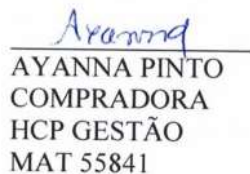 Ayanna
AYANNA PINTO
COMPRADORA
HCP GESTÃO
MAT 55841